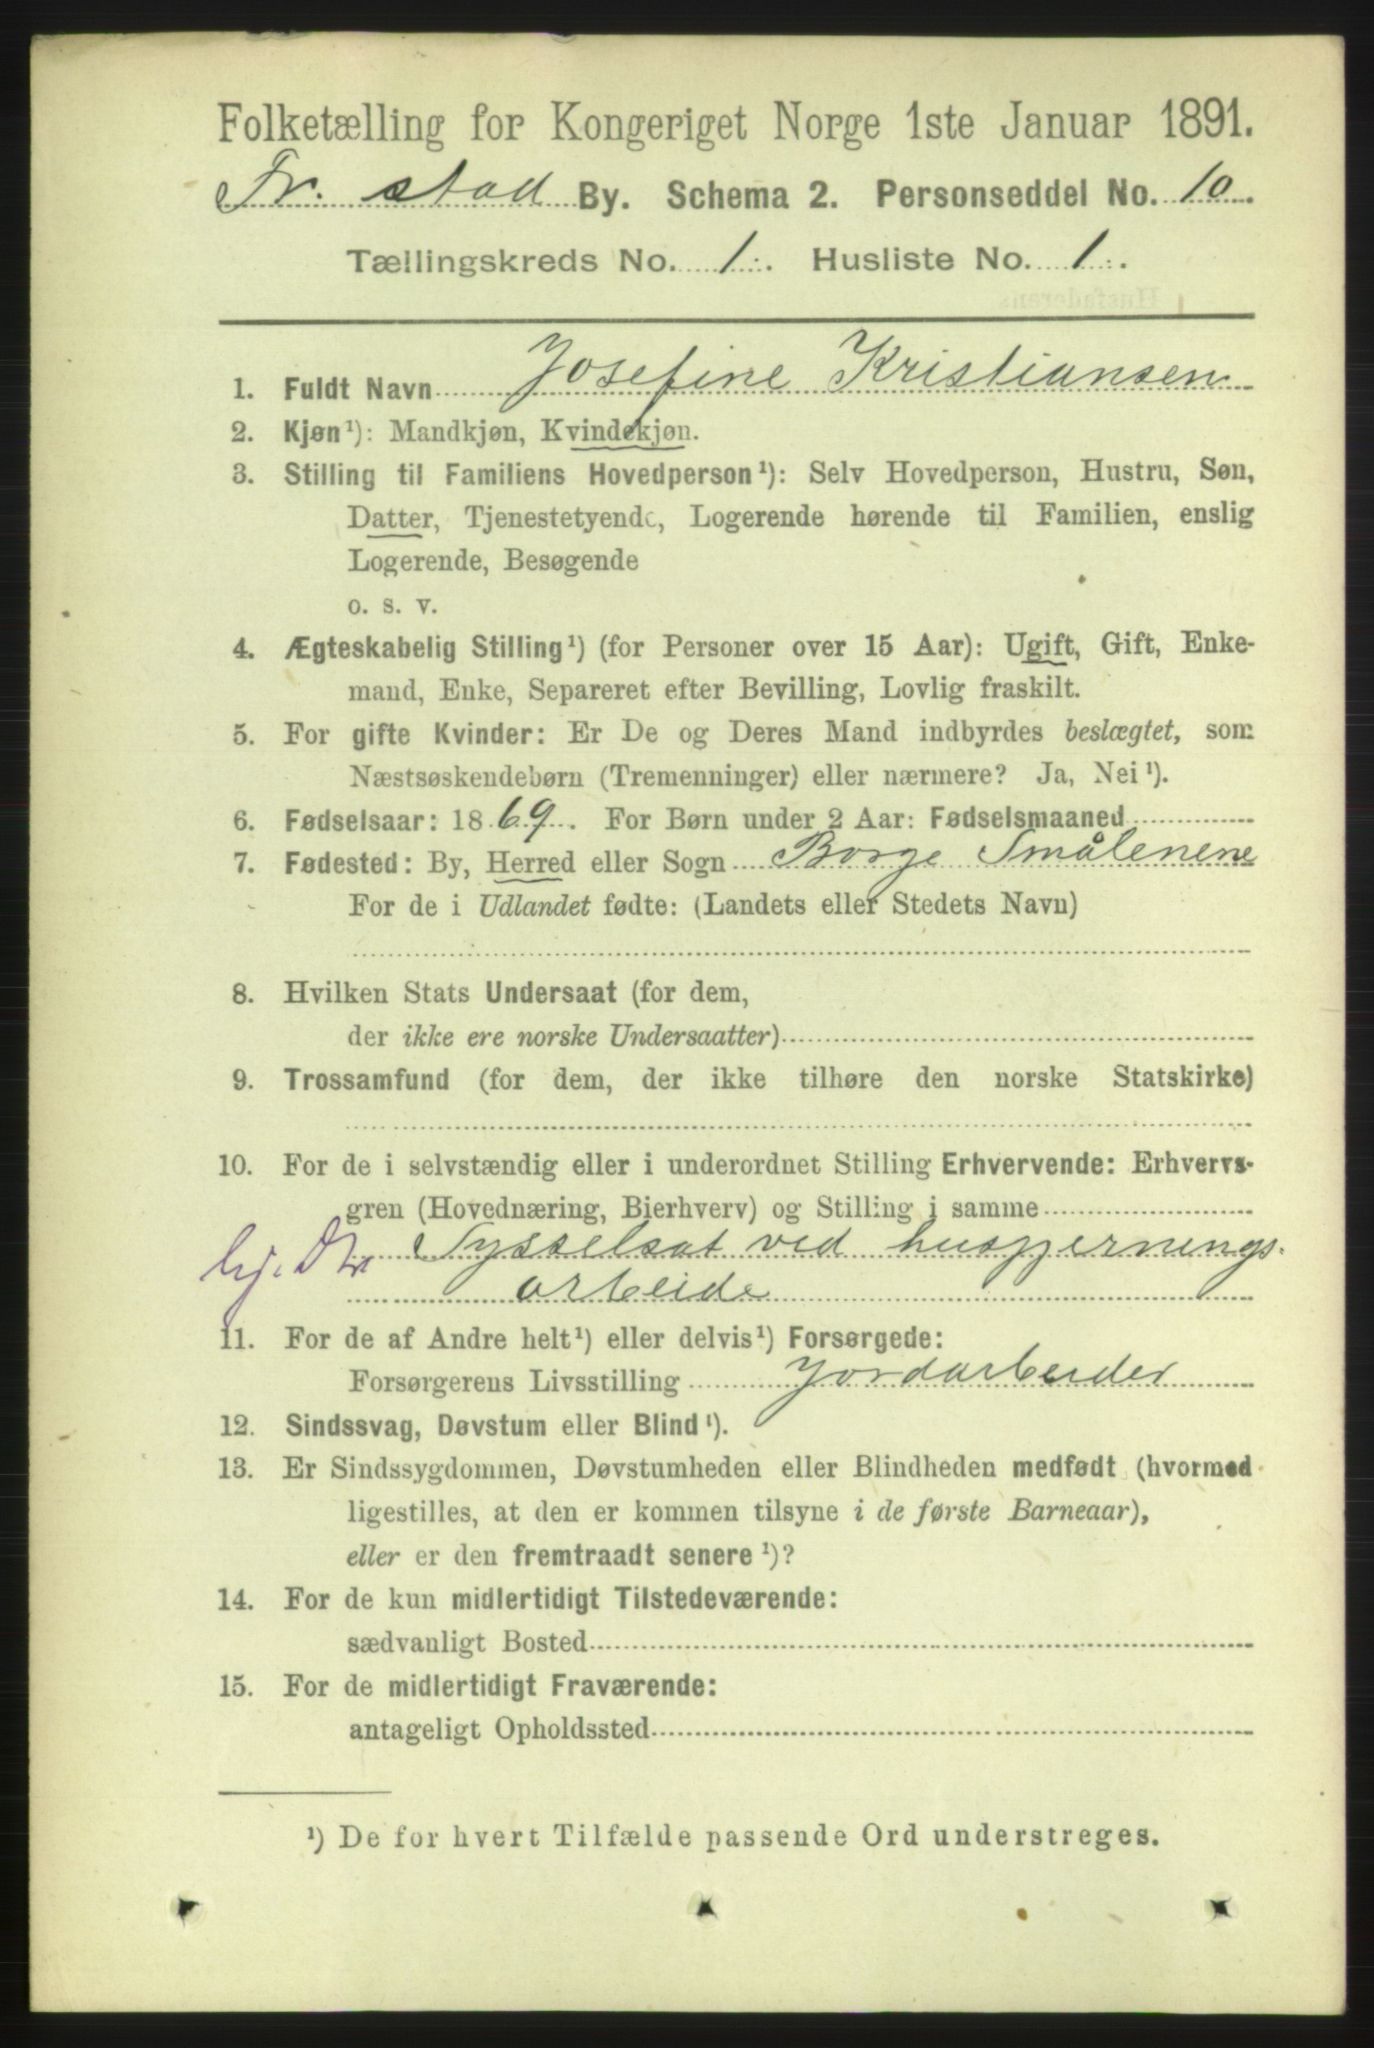 Folketælling for Kongeriget Norge 1ste Januar 1891.
Fr. stad By. Schema 2. Personseddel No. 10.
Tællingskreds No. 1. Husliste No. 1.
1. Fuldt Navn Josefine Kristiansen
2. Kjøn¹): Mandkjøn, Kvindekjøn.
3. Stilling til Familiens Hovedperson¹): Selv Hovedperson, Hustru, Søn,
Datter, Tjenestetyende, Logerende hørende til Familien, enslig
Logerende, Besøgende
o. s. v.
4. Ægteskabelig Stilling¹) (for Personer over 15 Aar): Ugift, Gift, Enke-
mand, Enke, Separeret efter Bevilling, Lovlig fraskilt.
5. For gifte Kvinder: Er De og Deres Mand indbyrdes beslægtet, som
Næstsøskendebørn (Tremenninger) eller nærmere? Ja, Nei¹).
6. Fødselsaar: 1869. For Børn under 2 Aar: Fødselsmaaned
7. Fødested: By, Herred eller Sogn Borge Smålenene
For de i Udlandet fødte: (Landets eller Stedets Navn)
8. Hvilken Stats Undersaat (for dem,
der ikke ere norske Undersaatter)
9. Trossamfund (for dem, der ikke tilhøre den norske Statskirke)
10. For de i selvstændig eller i underordnet Stilling Erhvervende: Erhvervs-
gren (Hovednæring, Bierhverv) og Stilling i samme
Sysselsat ved husgjernings-
arbeide
11. For de af Andre helt¹) eller delvis¹) Forsørgede:
Forsørgerens Livsstilling Jordarbeider
12. Sindssvag, Døvstum eller Blind¹).
13. Er Sindssygdommen, Døvstumheden eller Blindheden medfødt (hvormed
ligestilles, at den er kommen tilsyne i de første Barneaar),
eller er den fremtraadt senere¹)?
14. For de kun midlertidigt Tilstedeværende:
sædvanligt Bosted
15. For de midlertidigt Fraværende:
antageligt Opholdssted
¹) De for hvert Tilfælde passende Ord understreges.